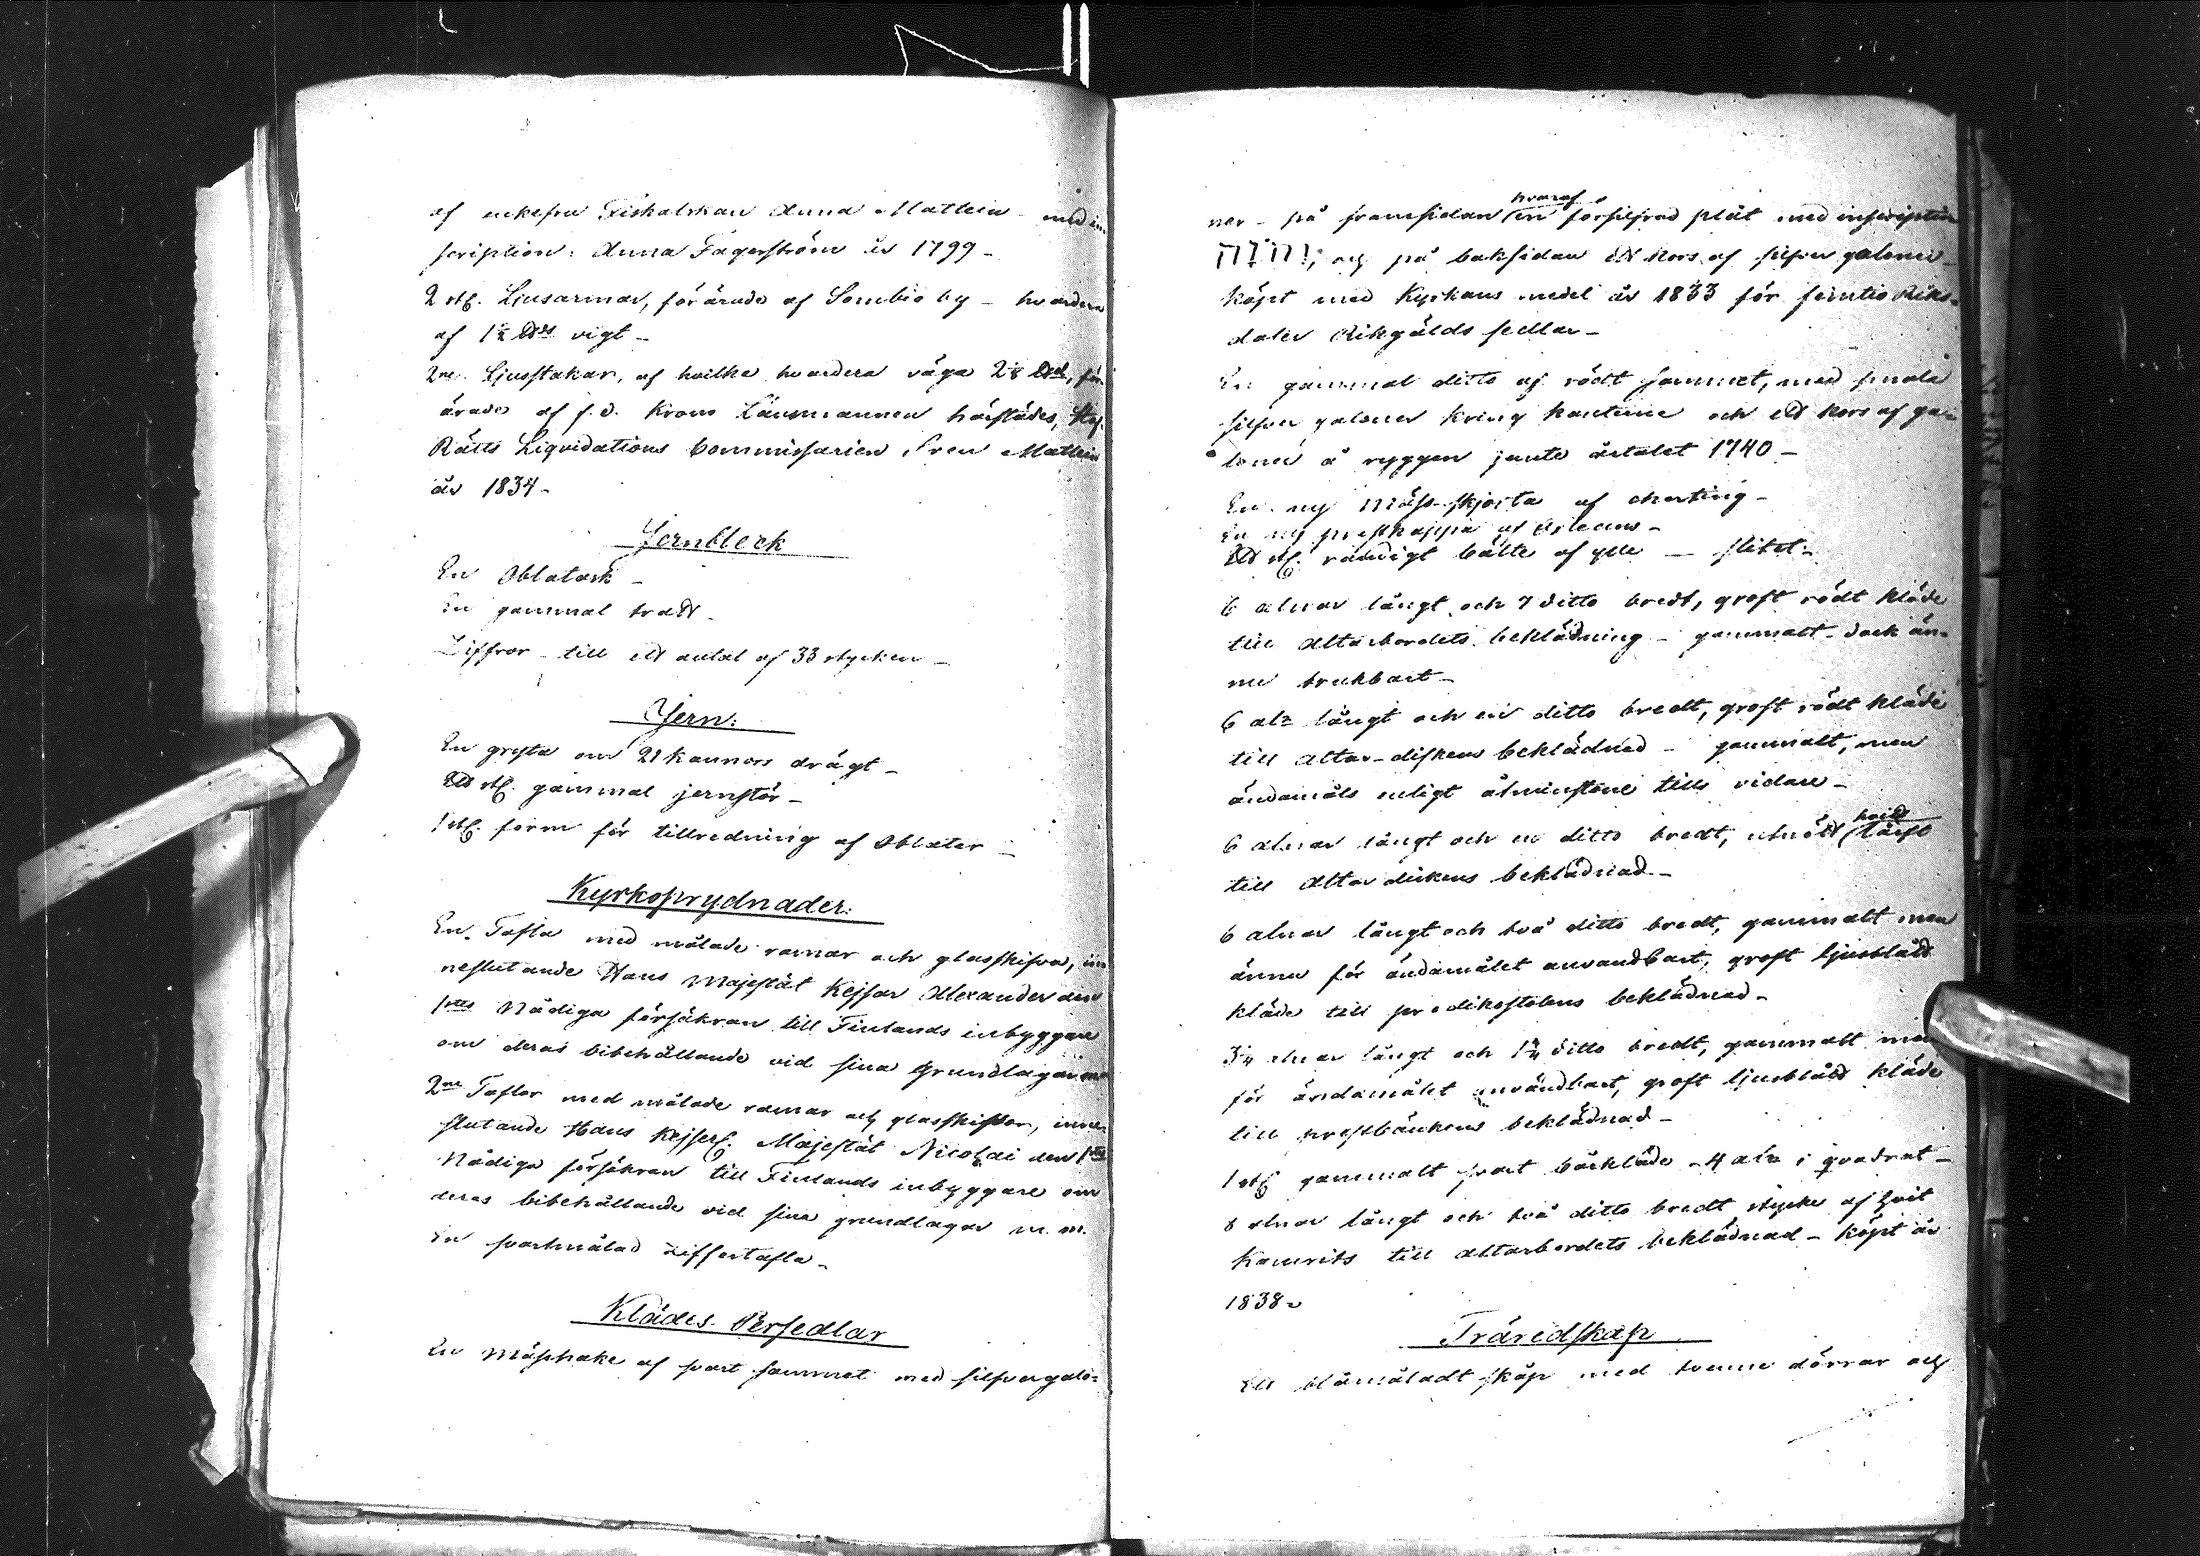 af enkefru Fiskalskan Anna Matlein med in
scription: Anna Fagerström år 1799 -
2 st. Ljusarmar, förärade af Sombio by - hvardera
af 1½ vigt -
2ne Ljusstakar, af hvilka hvardera väga 2⅛ för
ärade af f.d. Krono Länsmannen härstädes, Hof
Rätts Liqvidations Commissarien Sven Matlein
år 1834 -
Jernbleck
En Oblatask -
En gammal tratt -
Ziffror - till ett antal af 33 stycken -
Jern:
En gryta om 21 kannors drägt -
Ett st. gammal jernstör -
1 st. form för tillredning af Oblater -
Kyrkoprydnader:
En Tafla med målade ramar och glasskifva, in
neslutande Hans Majestät Kejsar Alexander den
1stes Nådiga försäkran till Finlands inbyggare
om deras bibehållande vid sina Grundlagar
2ne Taflor med målade ramar och glasskifvor, inne
slutande Hans Kejserl. Majestät Nicolai den 1stes
Nådiga försäkran till Finlands inbyggare om
deras bibehållande vid sina grundlagar m.m.
En svartmålad Ziffertafla -
Klädes-Persedlar
En Mässhake af svart sammet med silfvergalo-
ner - på framsidan hvaraf en försilfrad plåt med inscription
och på baksidan ett kors af silfver galoner -
köpt med Kyrkans medel år 1833 för femtio Riks-
daler Riksgälds sedlar -
En gammal ditto af rödt sammet, med smala
silfver galoner kring kanterne och ett kors af ga-
loner å ryggen jemte årtalet 1740 -
En ny Mäss-skjorta af charting -
En ny prestkappa af Orleans -
Ett st. randigt bälte af ylle - slitet -
6 alnar långt och 7 ditto bredt, groft rödt kläde
till Altarbordets beklädning - gammalt - dock än-
nu brukbart -
6 alr långt och en ditto bredt, groft rödt kläde
till Altar-disken beklädnad - gammalt, men
ändamåls enligt åtminstone tills vidare -
6 alnar långt och en ditto bredt, hvitt lärft
till Altar diskens beklädnad -
6 alnar långt och två ditto bredt, gammalt men
ännu för ändamålet användbart, groft ljusblått
kläde till predikostolens beklädnad -
3¼ alnar långt och 1¾ ditto bredt, gammalt men
för ändamålet användbart, groft ljusblått kläde
till prestbänkens beklädnad -
1 st gammalt svart bårkläde - 4 alr i qvadrat -
8 alnar långt och två ditto bredt stycke af hvit
Kamrits till altarbordets beklädnad - köpt år
1838 -
Träredskap
Ett blåmåladt skåp med tvenne dörrar och